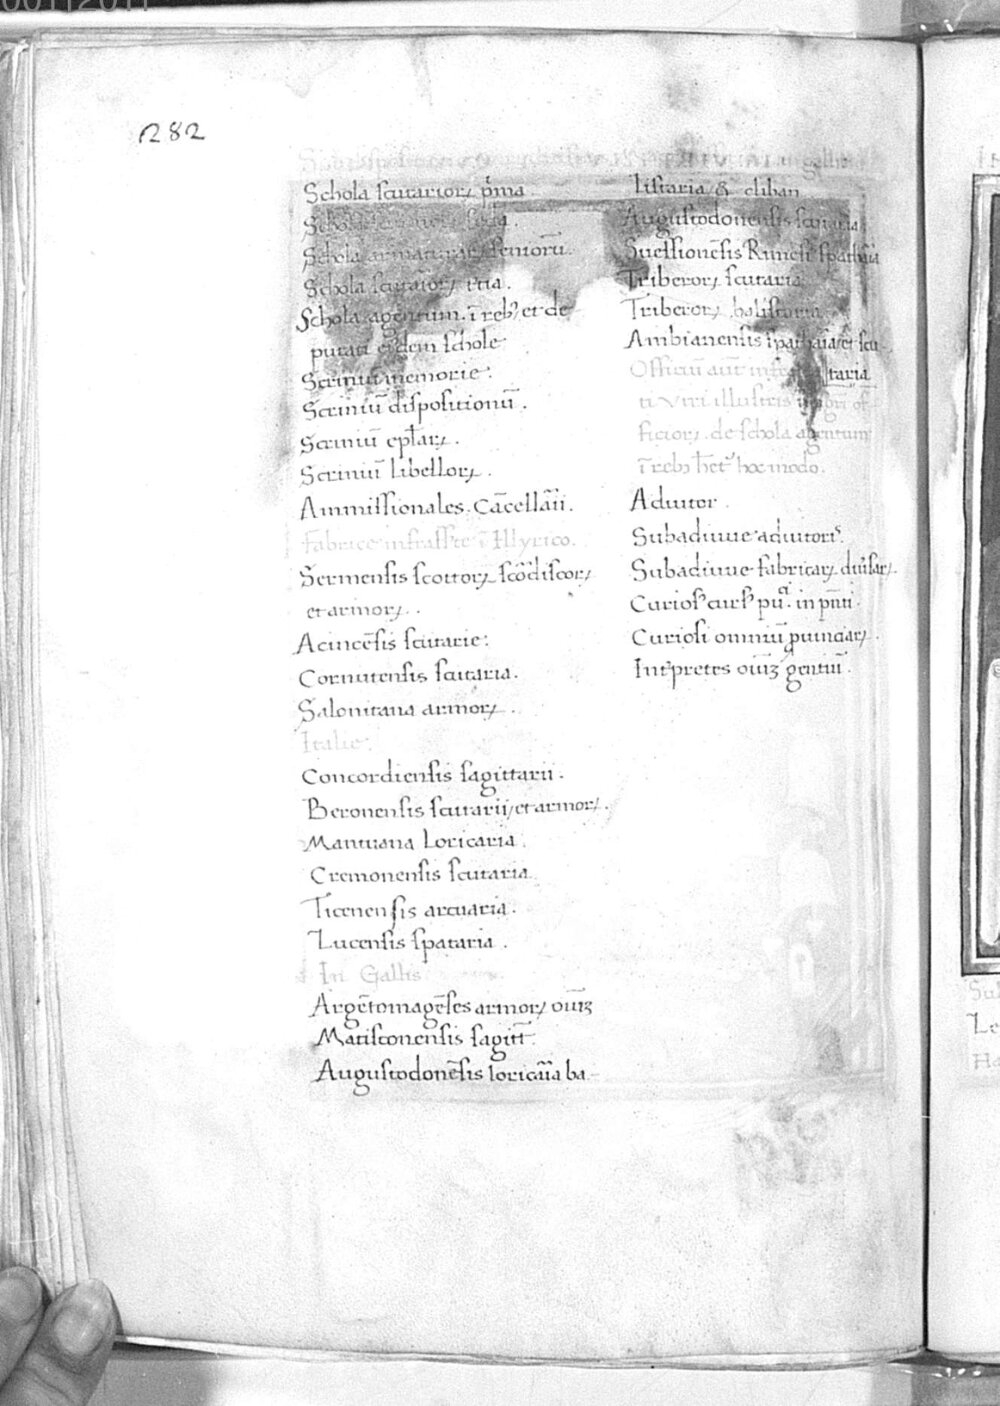 282
Schola scutarior. pͥma.
Schola
Schola armaturar. seniorū.
Schola scutarior. tͥtia.
Schola agentum. ī reb; et de-
putati eisdem schole
Scriniū memorie.
Scriniū dispositionū.
Scriniū ep̄lar.
Scriniū libellor.
Ammissionales. Cācellarii.
Fabrice infraſſc̄te ī Illyrico.
Sermensis scottor. scōdiscor.
et armor.
Acincēsis scutarie:
Cornutensis scutaria.
Salonitana armor.
Italie:
Concordiensis sagittarii.
Beronensis scutarii, et armor.
Mantuana loricaria.
Cremonensis scutaria.
Ticenensis arcuaria.
Lucensis spataria.
In Gallis
Argētomagēses armor. oīuꝫ
Matisconensis sagitt̄.
Augustodonēsis loricaria ba-
listaria, & cliban
Augustodonensis scutaria
Suessionēsis
Triberor. scutaria
Triberor. balistaria.
Ambianensis spatharia, et scu-
taria
Officiū aut̄
ti viri illustris mḡri of-
ficior. de schola agentum
ī reb; hētͬ hoc modo.
Adiutor.
Subadiuue adiutoris.
Subadiuue fabricar. diuſar.
Curioſꝰ curſꝰ puͣ. in pn̄ti.
Curiosi omniū puinciar.
Intͥpretes oīuꝫ gentiū.